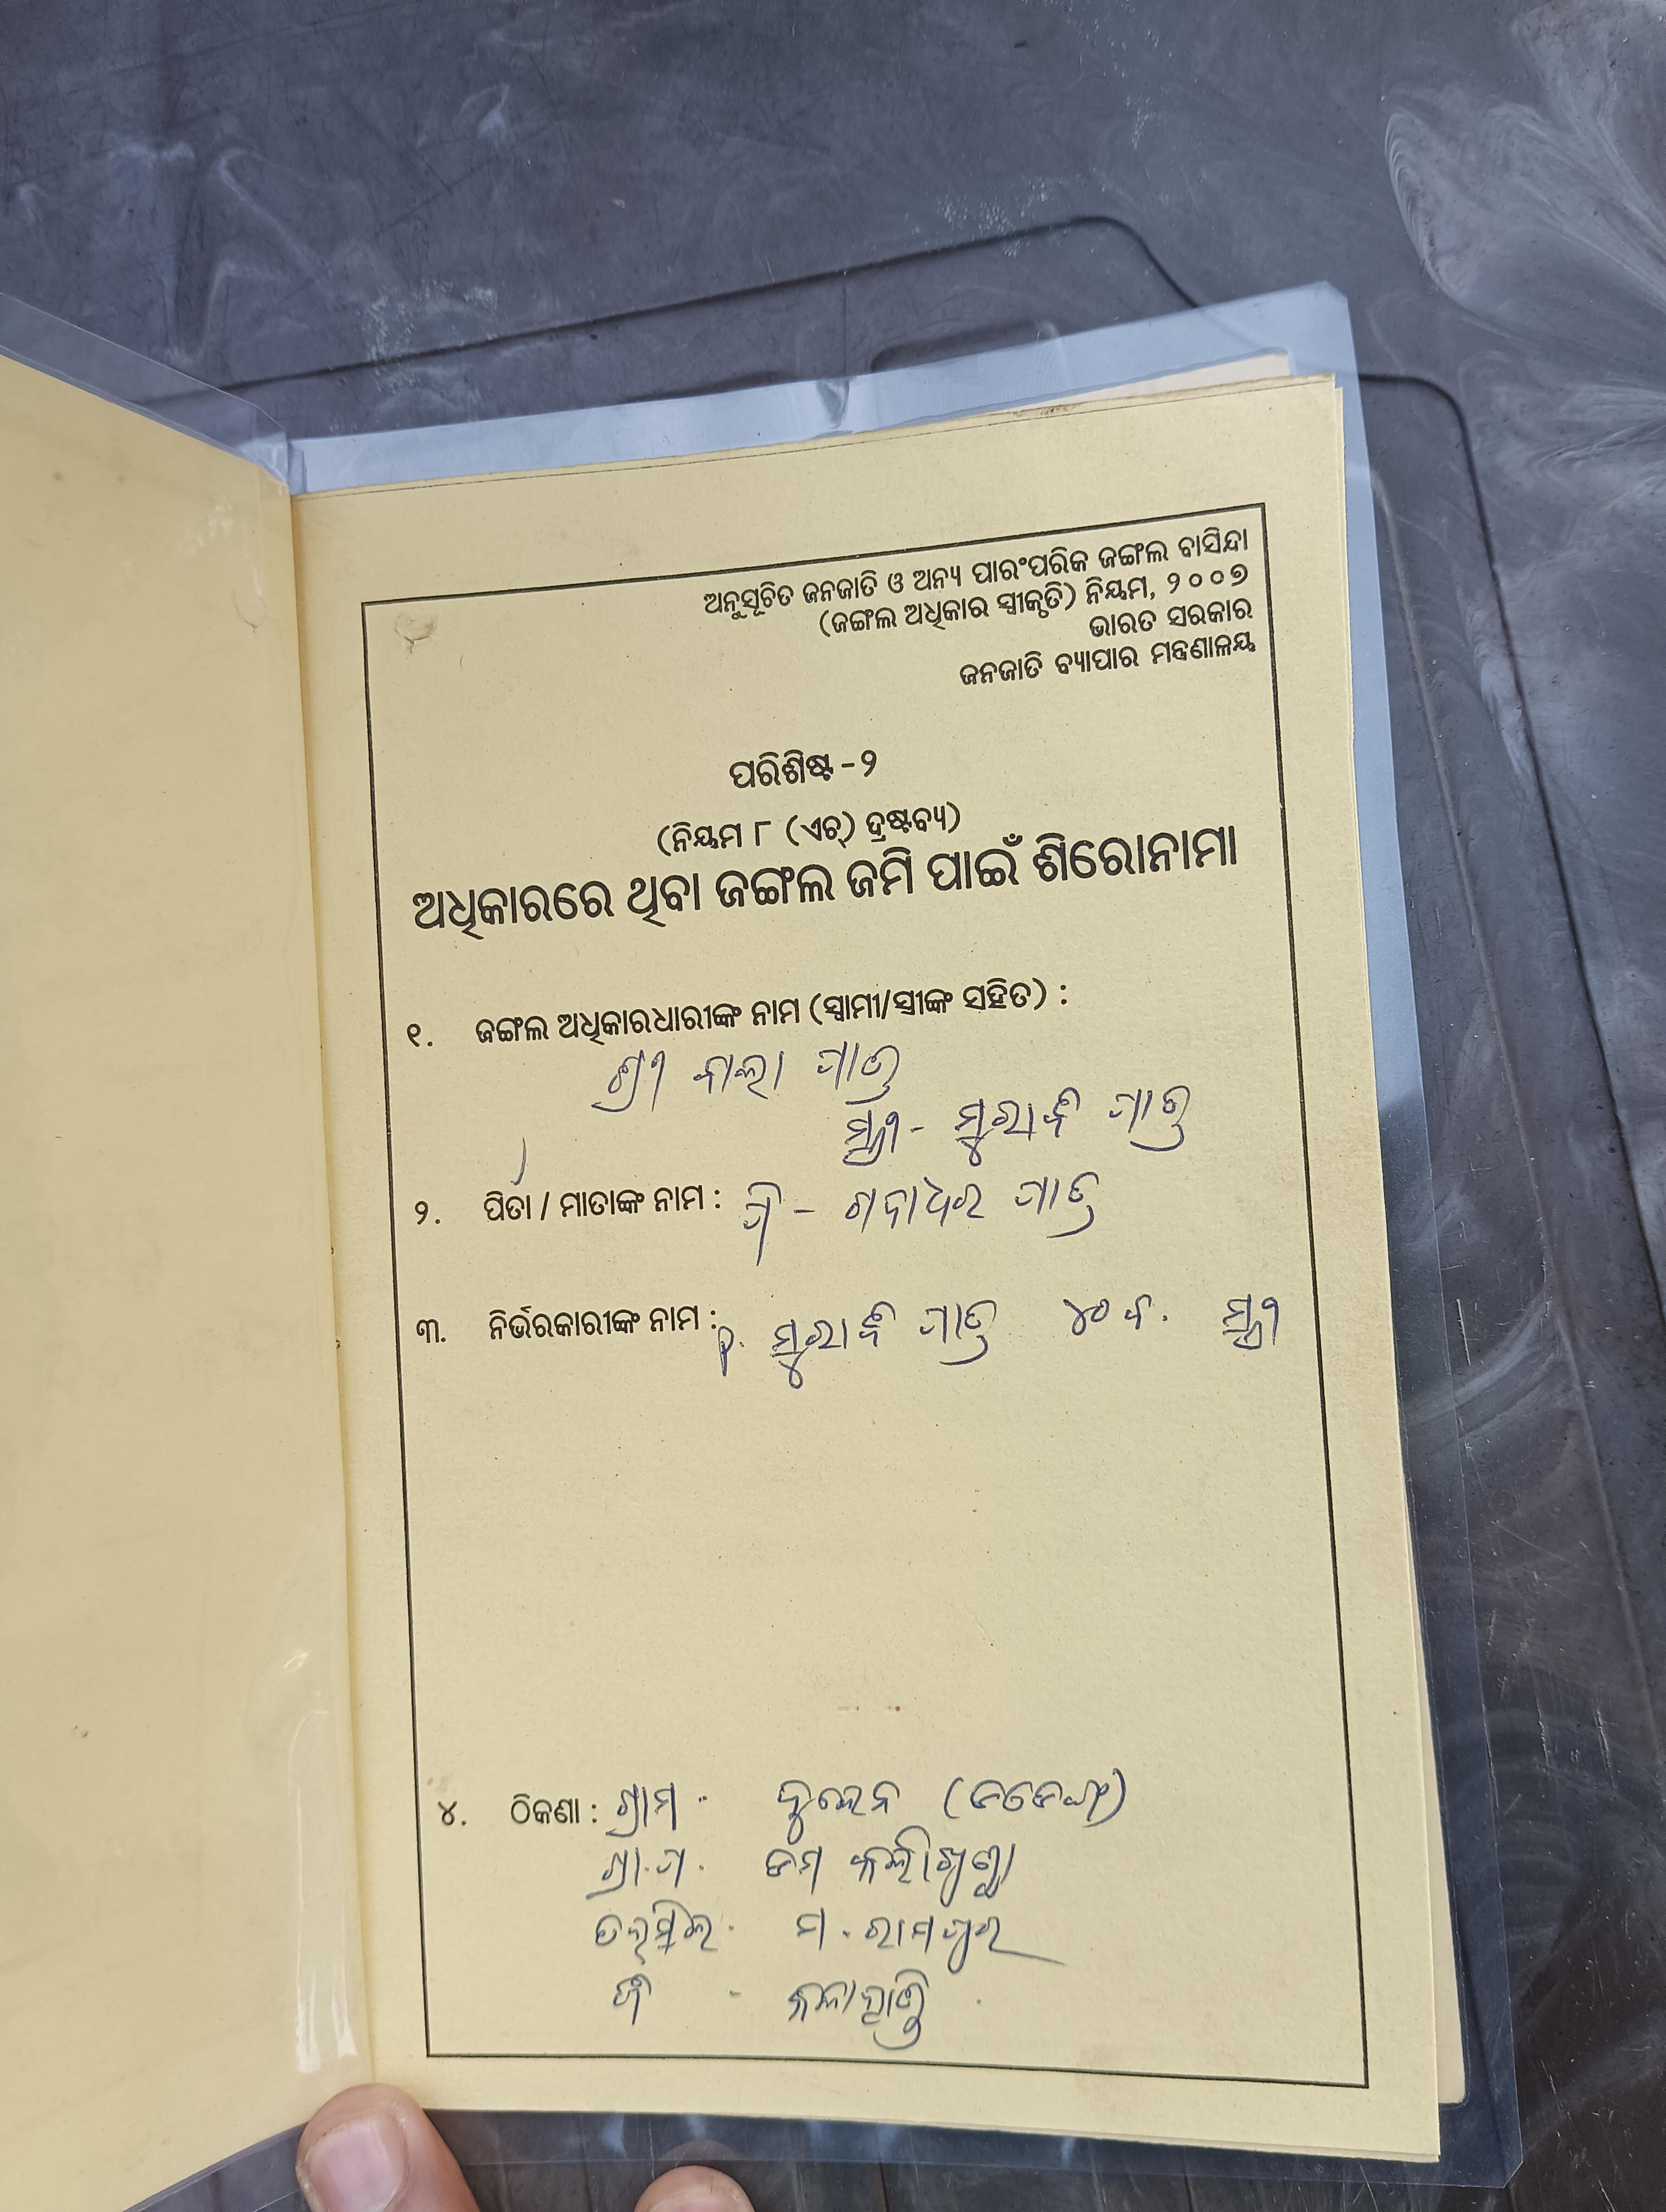 ଅନୁସୂଚିତ ଜନଜାତି ଓ ଅନ୍ୟ ପାରଂପରିକ ଜଙ୍ଗଲ ବାସିନ୍ଦା
(ଜଙ୍ଗଲ ଅଧିକାର ସ୍ୱୀକୃତି) ନିୟମ, ୨୦୦୭
ଭାରତ ସରକାର
ଜନଜାତି ବ୍ୟାପାର ମନ୍ତ୍ରଣାଳୟ
ପରିଶିଷ୍ଟ - ୨
(ନିୟମ ୮ (ଏଚ୍) ଦ୍ରଷ୍ଟବ୍ୟ)
ଅଧିକାରରେ ଥିବା ଜଙ୍ଗଲ ଜମି ପାଇଁ ଶିରୋନାମା
୧. ଜଙ୍ଗଲ ଅଧିକାରଧାରୀଙ୍କ ନାମ (ସ୍ୱାମୀ/ସ୍ତ୍ରୀଙ୍କ ସହିତ) :
ଶ୍ରୀ
ସ୍ତ୍ରୀ -
୨. ପିତା / ମାତାଙ୍କ ନାମ : ପି - ଗଦାଧର
୩. ନିର୍ଭରକାରୀଙ୍କ ନାମ : ୧. ୪୦ ବ. ସ୍ତ୍ରୀ
୪. ଠିକଣା : ଗ୍ରାମ -
ଗ୍ରା.ପ.
ତହସିଲ - ମ. ରାମପୁର
ଜି - କଳାହାଣ୍ଡି